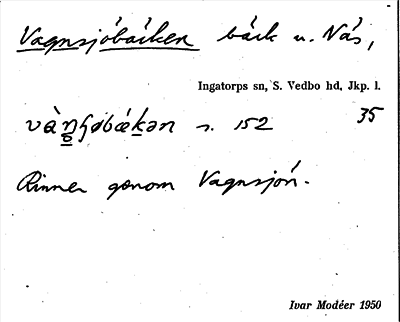 Vagnsjöbäcken bäck u. Näs,
Ingatorps sn, S. Vedbo hd, Jkp. l.
s. 152 35
Rinner genom Vagnsjön.
Ivar Modéer 1950